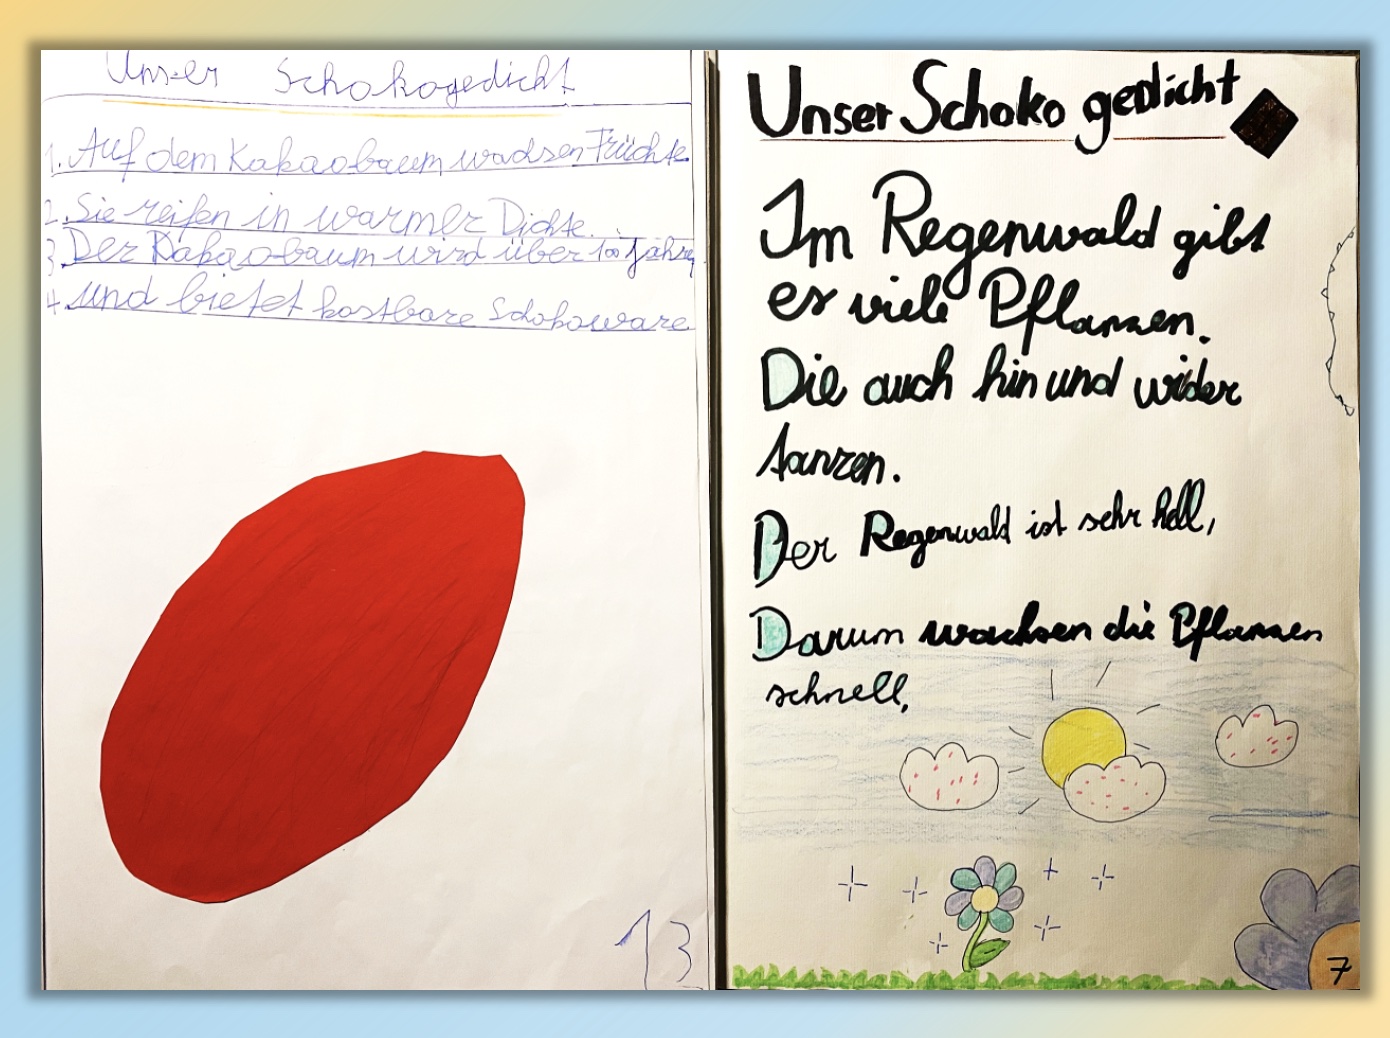 Unser Schokogedicht
1. Auf dem Kakaobaum wachsen Früchte
2. Sie reifen in warmer Dichte.
3. Der Kakaobaum wird über 100 Jahre
4. und bietet kostbare Schokoware
13
Unser Schoko gedicht
Im Regenwald gibt
es viele Pflanzen.
Die auch hin und wider
tanzen.
Der Regenwald ist sehr hell,
Darum wachsen die Pflanzen
schnell,
7